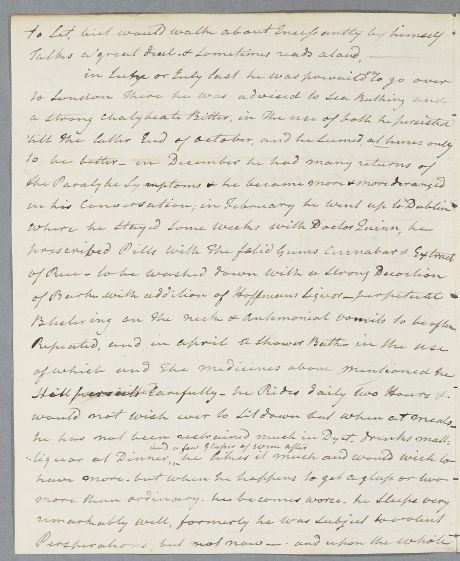 to Set, but would walk about Incessantly by himself
Talks a great deal & sometimes reads aloud, —
in June or July last he was prevaild To go over
to London There he was advised to Sea Bathing and
a strong Chalybeate Bitter, in The use of both he persisted
till The latter End of october, and he Seemed, at times only
to be better – in December he had many returns of
the Paralytic Symptoms & he became more & more deranged
in his Conversation, in February he went up to Dublin
where he Stayed Some weeks with Doctor Quinn, he
prescribed Pills with The fœtid Gums Cinnabar & Extract
of Rue – to be washed down with a strong Decoction
of Bark with addition of Hoffmans Liquor – perpetual
Blistering on the neck & Antemonial vomits to be often
Repeated, and in april a Shower Bath – in the use
of which and The medicines above mentioned he
Still persists Carefully – he Rides daily two Hours &
would not wish ever to Sit down but when at meals –
he has not been restrained much in Dyet. drinks malt
and a few Glasses of wine after
liquor at Dinner, he likes it much and would wish to
have more. but when he happens to get a glass or two
more than ordinary. he becomes worse. he sleeps very
remarkably well, formerly he was subject to violent
Perspirations, but not now – and upon the whole